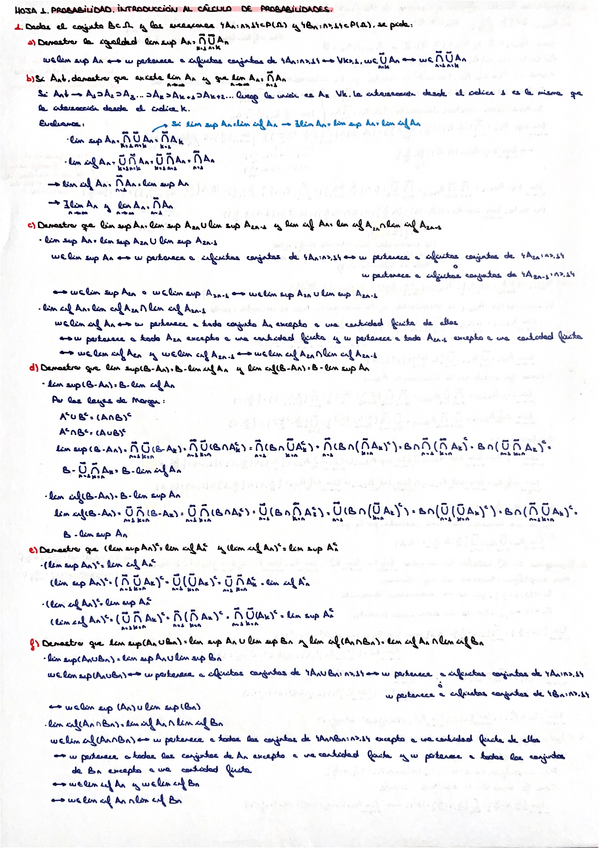 HOJA 1. PROBABILIDAD. INTRODUCCIÓN AL CÁLCULO DE PROBABILIDADES.
1. Dados el conjunto B⊂Ω y las sucesiones {An:n≥1}⊂P(Ω) y {Bn:n≥1}⊂P(Ω), se pide:
a) Demostrar la igualdad lim sup An = ∩ₙ₌₁^∞ ∪ₖ₌ₙ^∞ An
w∈lim sup An ↔ w pertenece a infinitos conjuntos de {An:n≥1} ↔ ∀k≥1, w∈ ∪An ↔ w∈ ∩∪An
b) Si An↓, demostrar que existe lim An y que lim An = ∩An
Si An↓ → A1⊃A2⊃A3...⊃Ak⊃Ak+1⊃Ak+2... luego la unión es Ak ∀k. La intersección desde el índice 1 es la misma que
la intersección desde el índice k.
Evaluamos: Si lim sup An = lim inf An → ∃lim An = lim sup An = lim inf An
· lim sup An = ∩∪An = ∩Ak
· lim inf An = ∪∩An = ∪∩An = ∩An
→ lim inf An = ∩An = lim sup An
→ ∃lim An y lim An = ∩An
c) Demostrar que lim sup An = lim sup A2n ∪ lim sup A2n-1 y lim inf An = lim inf A2n ∩ lim inf A2n-1
· lim sup An = lim sup A2n ∪ lim sup A2n-1
w∈lim sup An ↔ w pertenece a infinitos conjuntos de {An:n≥1} ↔ w pertenece a infinitos conjuntos de {A2n:n≥1}
o
w pertenece a infinitos conjuntos de {A2n-1:n≥1}
↔ w∈lim sup A2n o w∈lim sup A2n-1 ↔ w∈lim sup A2n ∪ lim sup A2n-1
· lim inf An = lim inf A2n ∩ lim inf A2n-1
w∈lim inf An ↔ w pertenece a todo conjunto An excepto a una cantidad finita de ellos
↔ w pertenece a todo A2n excepto a una cantidad finita y w pertenece a todo A2n-1 excepto a una cantidad finita
↔ w∈lim inf A2n y w∈lim inf A2n-1 ↔ w∈lim inf A2n ∩ lim inf A2n-1
d) Demostrar que lim sup(B-An) = B-lim inf An y lim inf(B-An) = B-lim sup An
· lim sup(B-An) = B-lim inf An
Por las leyes de Morgan:
Aᶜ∪Bᶜ = (A∩B)ᶜ
Aᶜ∩Bᶜ = (A∪B)ᶜ
lim sup (B-An) = ∩∪(B-Ak) = ∩∪(B∩Akᶜ) = ∩(B∩∪Akᶜ) = ∩(B∩(∩Ak)ᶜ) = B∩∩(∩Ak)ᶜ = B∩(∪∩Ak)ᶜ =
B-∪∩Ak = B-lim inf An
· lim inf(B-An) = B-lim sup An
lim inf(B-An) = ∪∩(B-Ak) = ∪∩(B∩Akᶜ) = ∪(B∩∩Akᶜ) = ∪(B∩(∪Ak)ᶜ) = B∩(∪(∪Ak)ᶜ) = B∩(∩∪Ak)ᶜ =
B-lim sup An
e) Demostrar que (lim sup An)ᶜ = lim inf Anᶜ y (lim inf An)ᶜ = lim sup Anᶜ
· (lim sup An)ᶜ = lim inf Anᶜ
(lim sup An)ᶜ = (∩∪Ak)ᶜ = ∪(∪Ak)ᶜ = ∪∩Akᶜ = lim inf Anᶜ
· (lim inf An)ᶜ = lim sup Anᶜ
(lim inf An)ᶜ = (∪∩Ak)ᶜ = ∩(∩Ak)ᶜ = ∩∪(Ak)ᶜ = lim sup Anᶜ
f) Demostrar que lim sup(An∪Bn) = lim sup An ∪ lim sup Bn y lim inf(An∩Bn) = lim inf An ∩ lim inf Bn
· lim sup(An∪Bn) = lim sup An ∪ lim sup Bn
w∈lim sup(An∪Bn) ↔ w pertenece a infinitos conjuntos de {An∪Bn:n≥1} ↔ w pertenece a infinitos conjuntos de {An:n≥1}
o
w pertenece a infinitos conjuntos de {Bn:n≥1}
↔ w∈lim sup (An) ∪ lim sup (Bn)
· lim inf(An∩Bn) = lim inf An ∩ lim inf Bn
w∈lim inf(An∩Bn) ↔ w pertenece a todos los conjuntos de {An∩Bn:n≥1} excepto a una cantidad finita de ellos
↔ w pertenece a todos los conjuntos de An excepto a una cantidad finita y w pertenece a todos los conjuntos
de Bn excepto a una cantidad finita
↔ w∈lim inf An y w∈lim inf Bn
↔ w∈lim inf An ∩ lim inf Bn